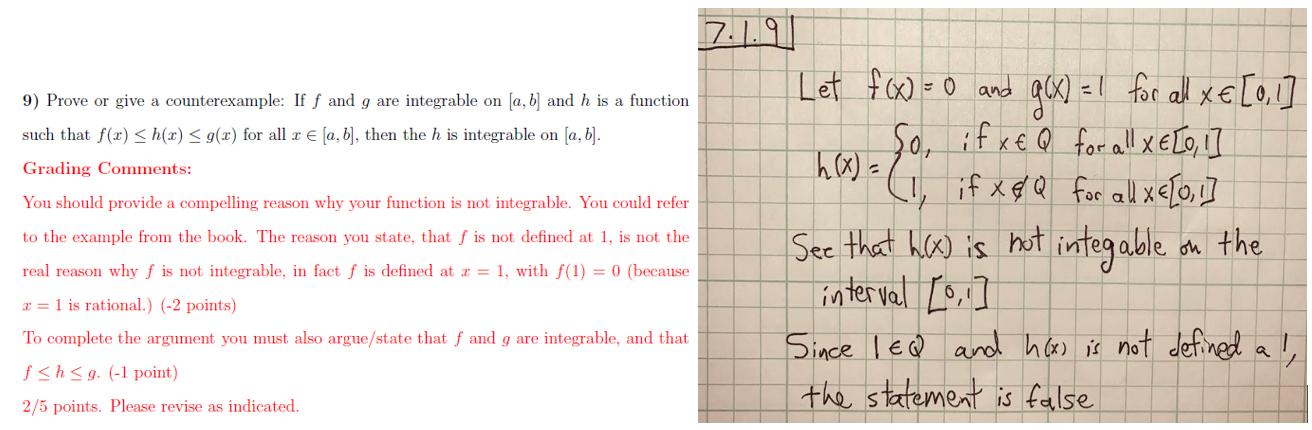 9) Prove or give a counterexample: If f and g are integrable on [a, b] and h is a function
such that f(x) ≤ h(x) ≤ g(x) for all x ∈ [a, b], then the h is integrable on [a, b].
Grading Comments:
You should provide a compelling reason why your function is not integrable. You could refer
to the example from the book. The reason you state, that f is not defined at 1, is not the
real reason why f is not integrable, in fact f is defined at x = 1, with f(1) = 0 (because
x = 1 is rational.) (-2 points)
To complete the argument you must also argue/state that f and g are integrable, and that
f ≤ h ≤ g. (-1 point)
2/5 points. Please revise as indicated.
7.1.9
Let f(x) = 0 and g(x) = 1 for all x ∈ [0,1]
h(x) = { 0, if x ∈ Q for all x ∈ [0,1]
1, if x ∉ Q for all x ∈ [0,1]
See that h(x) is not integable on the
interval [0,1]
Since 1 ∈ Q and h(x) is not defined a 1,
the statement is false